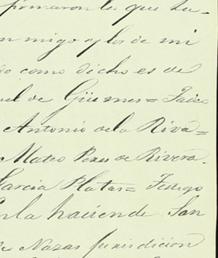 firmaron los que su-
n migo y los de mi
do como dicho es de
uel de Güemes= Jose
Antonio de la Riva=
Mateo Perez de Rivera.
Garcia Platas= Testigo
En la hacienda San
de Nazas jurisdicion